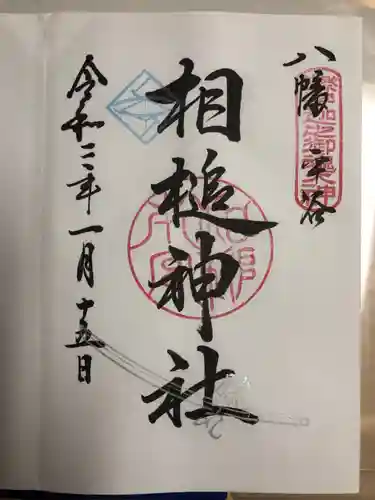 八幡平谷
相槌神社
令和三年一月十五日